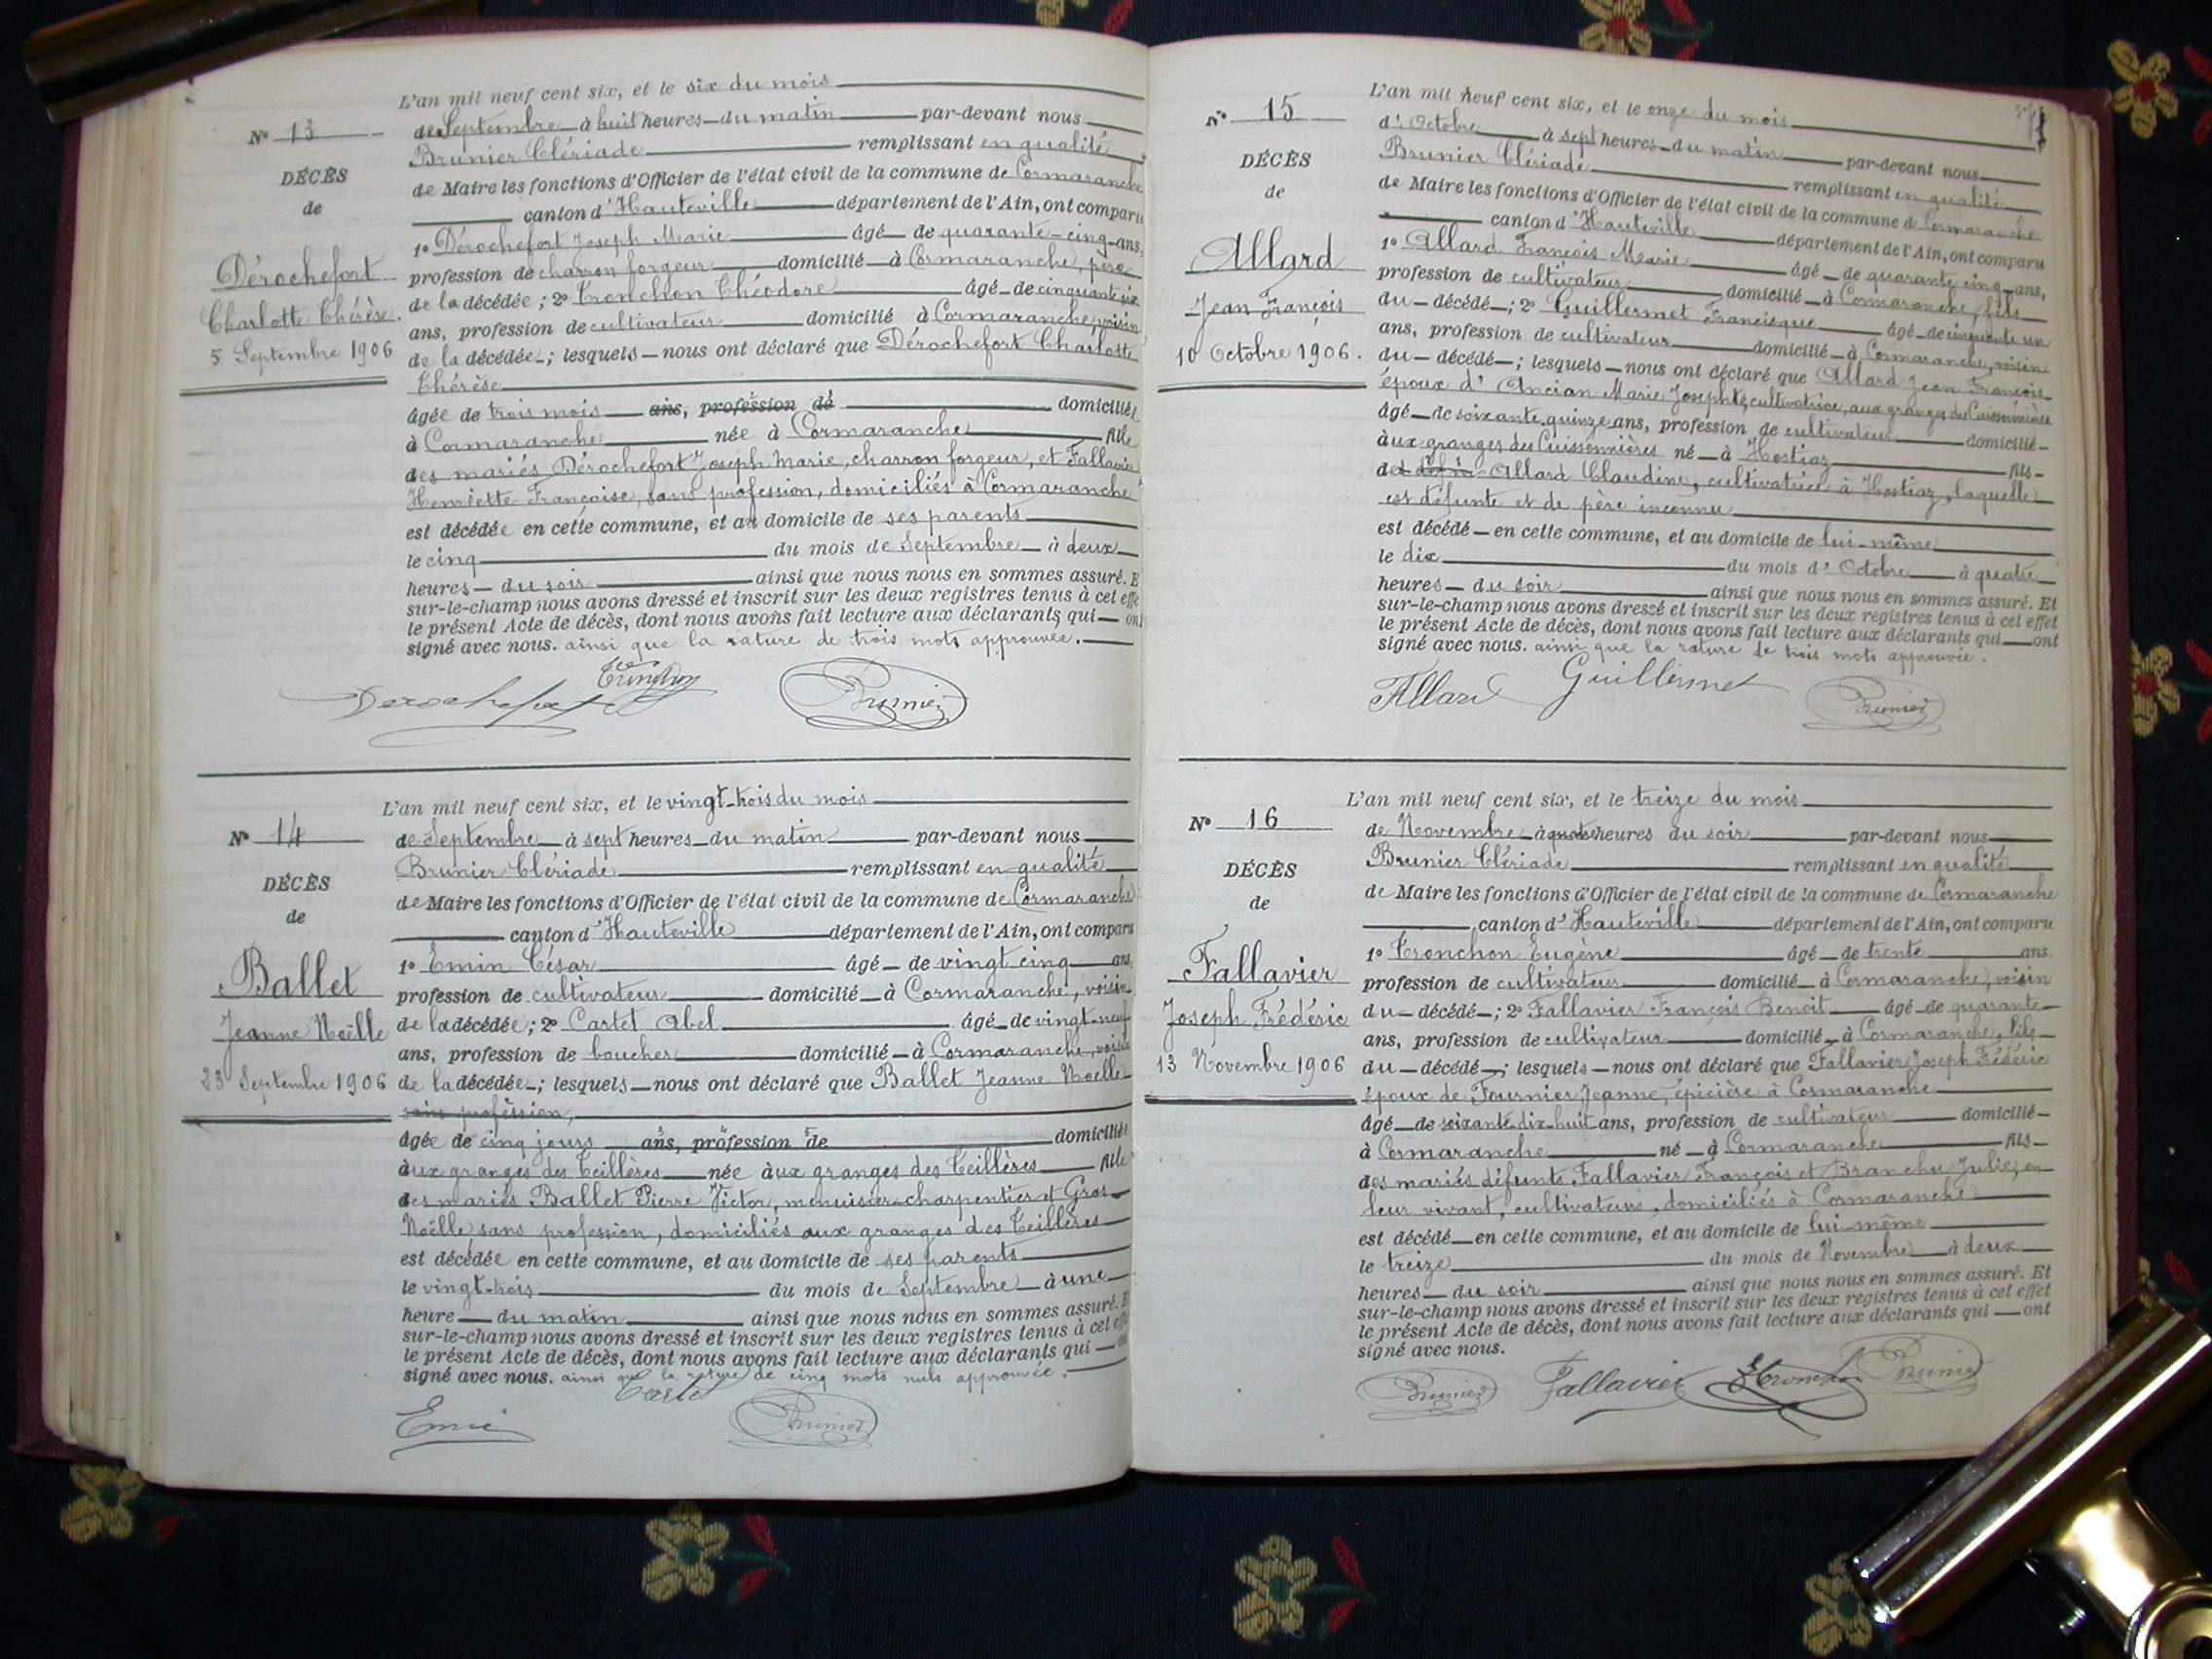 L'an mil neuf cent six, et le six du mois
N° 13
de Septembre à huit heures du matin par-devant nous
Brunier Clériade remplissant en qualité
DÉCÈS
de Maire les fonctions d'Officier de l'état civil de la commune de Cormaranche
de
canton d'Hauteville département de l'Ain, ont comparu
1° Dérochefort Joseph Marie âgé de quarante-cinq ans,
Dérochefort
profession de charron forgeur domicilié à Cormaranche, père
Charlotte Thérèse.
de la décédée; 2° Tronchon Théodore âgé de cinquante six
ans, profession de cultivateur domicilié à Cormaranche, voisin
5 Septembre 1906
de la décédée; lesquels nous ont déclaré que Dérochefort Charlotte
Thérèse
âgée de trois mois ans, profession de domiciliée
à Cormaranche née à Cormaranche fille
des mariés Dérochefort Joseph Marie, charron forgeur, et Fallavier
Henriette Françoise, sans profession, domiciliés à Cormaranche
est décédée en cette commune, et au domicile de ses parents
le cinq du mois de Septembre à deux
heures du soir ainsi que nous nous en sommes assuré. E
sur-le-champ nous avons dressé et inscrit sur les deux registres tenus à cet effe
le présent Acte de décès, dont nous avons fait lecture aux déclarants qui ont
signé avec nous. ainsi que la rature de trois mots approuvée.
Derochefort Brunier
L'an mil neuf cent six, et le vingt-trois du mois
N° 14
de Septembre à sept heures du matin par-devant nous
Brunier Clériade remplissant en qualité
DÉCÈS
de Maire les fonctions d'Officier de l'état civil de la commune de Cormaranche
de
canton d'Hauteville département de l'Ain, ont comparu
1° Emin César âgé de vingt cinq ans,
Ballet
profession de cultivateur domicilié à Cormaranche, voisin
Jeanne Noëlle
de la décédée; 2° Cartet Abel âgé de vingt-neuf
ans, profession de boucher domicilié à Cormaranche, voisin
23 Septembre 1906
de la décédée; lesquels nous ont déclaré que Ballet Jeanne Noëlle
sans profession,
âgée de cinq jours ans, profession de domiciliée
aux granges des Teillères née aux granges des Teillères fille
des mariés Ballet Pierre Victor, menuisier-charpentier et Gros
Noëlle, sans profession, domiciliés aux granges des Teillères
est décédée en cette commune, et au domicile de ses parents
le vingt-trois du mois de Septembre à une
heure du matin ainsi que nous nous en sommes assuré. E
sur-le-champ nous avons dressé et inscrit sur les deux registres tenus à cet eff
le présent Acte de décès, dont nous avons fait lecture aux déclarants qui
signé avec nous. ainsi que la rature de cinq mots nuls approuvée.
Cartet
Emin Brunier
L'an mil neuf cent six, et le onze du mois
N° 15
d'Octobre à sept heures du matin par-devant nous
Brunier Clériade remplissant en qualité
DÉCÈS
de Maire les fonctions d'Officier de l'état civil de la commune de Cormaranche
de
canton d'Hauteville département de l'Ain, ont comparu
1° Allard François Marie âgé de quarante cinq ans,
Allard
profession de cultivateur domicilié à Cormaranche, fils
Jean François
du décédé; 2° Guillermet Francisque âgé de cinquante un
ans, profession de cultivateur domicilié à Cormaranche, voisin
10 Octobre 1906.
du décédé; lesquels nous ont déclaré que Allard Jean François
époux d'Ancian Marie Josephte, cultivatrice, aux granges des Cuissonnières
âgé de soixante-quinze ans, profession de cultivateur domicilié
aux granges des Cuissonnières né à Hostiaz fils
de Allard Claudine, cultivatrice à Hostiaz, laquelle
est défunte et de père inconnu
est décédé en cette commune, et au domicile de lui-même
le dix du mois d'Octobre à quatre
heures du soir ainsi que nous nous en sommes assuré. Et
sur-le-champ nous avons dressé et inscrit sur les deux registres tenus à cet effet
le présent Acte de décès, dont nous avons fait lecture aux déclarants qui ont
signé avec nous. ainsi que la rature de trois mots approuvée.
Allard Guillermet Brunier
L'an mil neuf cent six, et le treize du mois
N° 16
de Novembre à quatre heures du soir par-devant nous
Brunier Clériade remplissant en qualité
DÉCÈS
de Maire les fonctions d'Officier de l'état civil de la commune de Cormaranche
de
canton d'Hauteville département de l'Ain, ont comparu
1° Tronchon Eugène âgé de trente ans.
Fallavier
profession de cultivateur domicilié à Cormaranche, voisin
Joseph Frédéric
du décédé; 2° Fallavier François Benoit âgé de quarante
ans, profession de cultivateur domicilié à Cormaranche, fils
13 Novembre 1906
du décédé; lesquels nous ont déclaré que Fallavier Joseph Frédéric
époux de Fournier Jeanne, épicière à Cormaranche
âgé de soixante-dix-huit ans, profession de cultivateur domicilié
à Cormaranche né à Cormaranche fils
des mariés défunts Fallavier François et Branchu Julie, en
leur vivant, cultivateurs, domiciliés à Cormaranche
est décédé en cette commune, et au domicile de lui-même
le treize du mois de Novembre à deux
heures du soir ainsi que nous nous en sommes assuré. Et
sur-le-champ nous avons dressé et inscrit sur les deux registres tenus à cet effet
le présent Acte de décès, dont nous avons fait lecture aux déclarants qui ont
signé avec nous.
Brunier Fallavier Tronchon Brunier